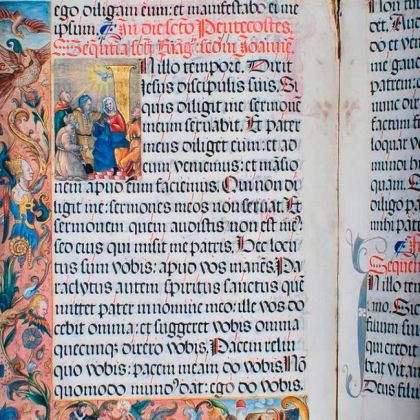 ego diligam eum: et manifestabo ei me
ipsum. In die scto Pentecostes.
scti Euãg. scdm Joannẽ.
IN illo tempore. Dixit
Jesus discipulis suis. Si
quis diligit me sermonẽ
meum seruabit. Et pater
meus diliget eum: et ad
eum veniemus: et mãsio
nem apud eum faciemus. Qui non di
ligit me: sermones meos non seruat. Et
sermonem quem audistis non est me⁹:
sed eius qui misit me patris. Hec locu
tus sum vobis: apud vos manẽs. Pa
raclytus autem spiritus sanctus quẽ
mittet pater in nomine meo: ille vos do
cebit omnia: et suggeret vobis omnia
quecunque dixero vobis. Pacem relin
quo vobis: pacem meam do vobis. Nõ
quomodo mund⁹ dat: ego do vobis.
Non tur
cet. Au
do et v
gaude
patrem
me est
factum f
loquar v
mundi
quam.
diligo pa
mihi pat
Sequen
IN illo te
mo. S
filium
cred
vitam
Deus filiu